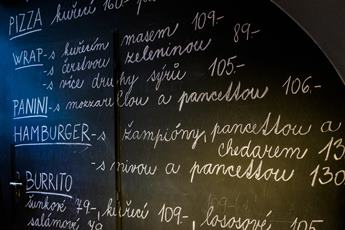 PIZZA kuřecí 160-
WRAP - s kuřecím masem 109-
- s čerstvou zeleninou 89-
- s více druhy sýrů 105-
PANINI - s mozzarellou a pancettou 106-
HAMBURGER - s žampióny, pancettou a
chedarem 13
- s nivou a pancettou 130
BURRITO
šunkové 79-, kuřecí 109-, lososové 105
salámové